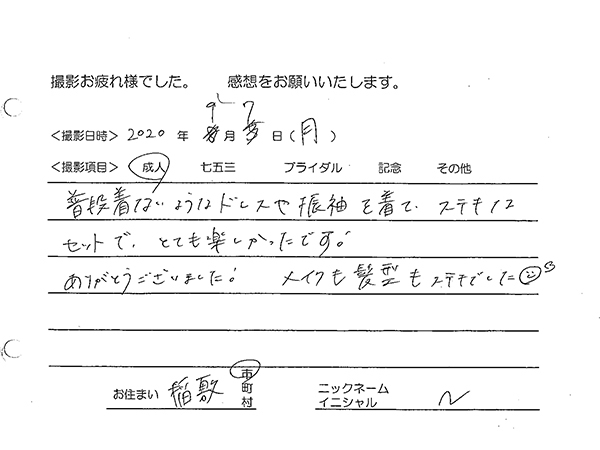 撮影お疲れ様でした。 感想をお願いいたします。
<撮影日時> 2020 年 9 月 7 日 (月)
<撮影項目> 成人 七五三 ブライダル 記念 その他
普段着ないようなドレスや振袖を着て、ステキな
セットで、とても楽しかったです!
ありがとうございました! メイクも髪型もステキでした
お住まい 稲敷 市町村 ニックネーム イニシャル N